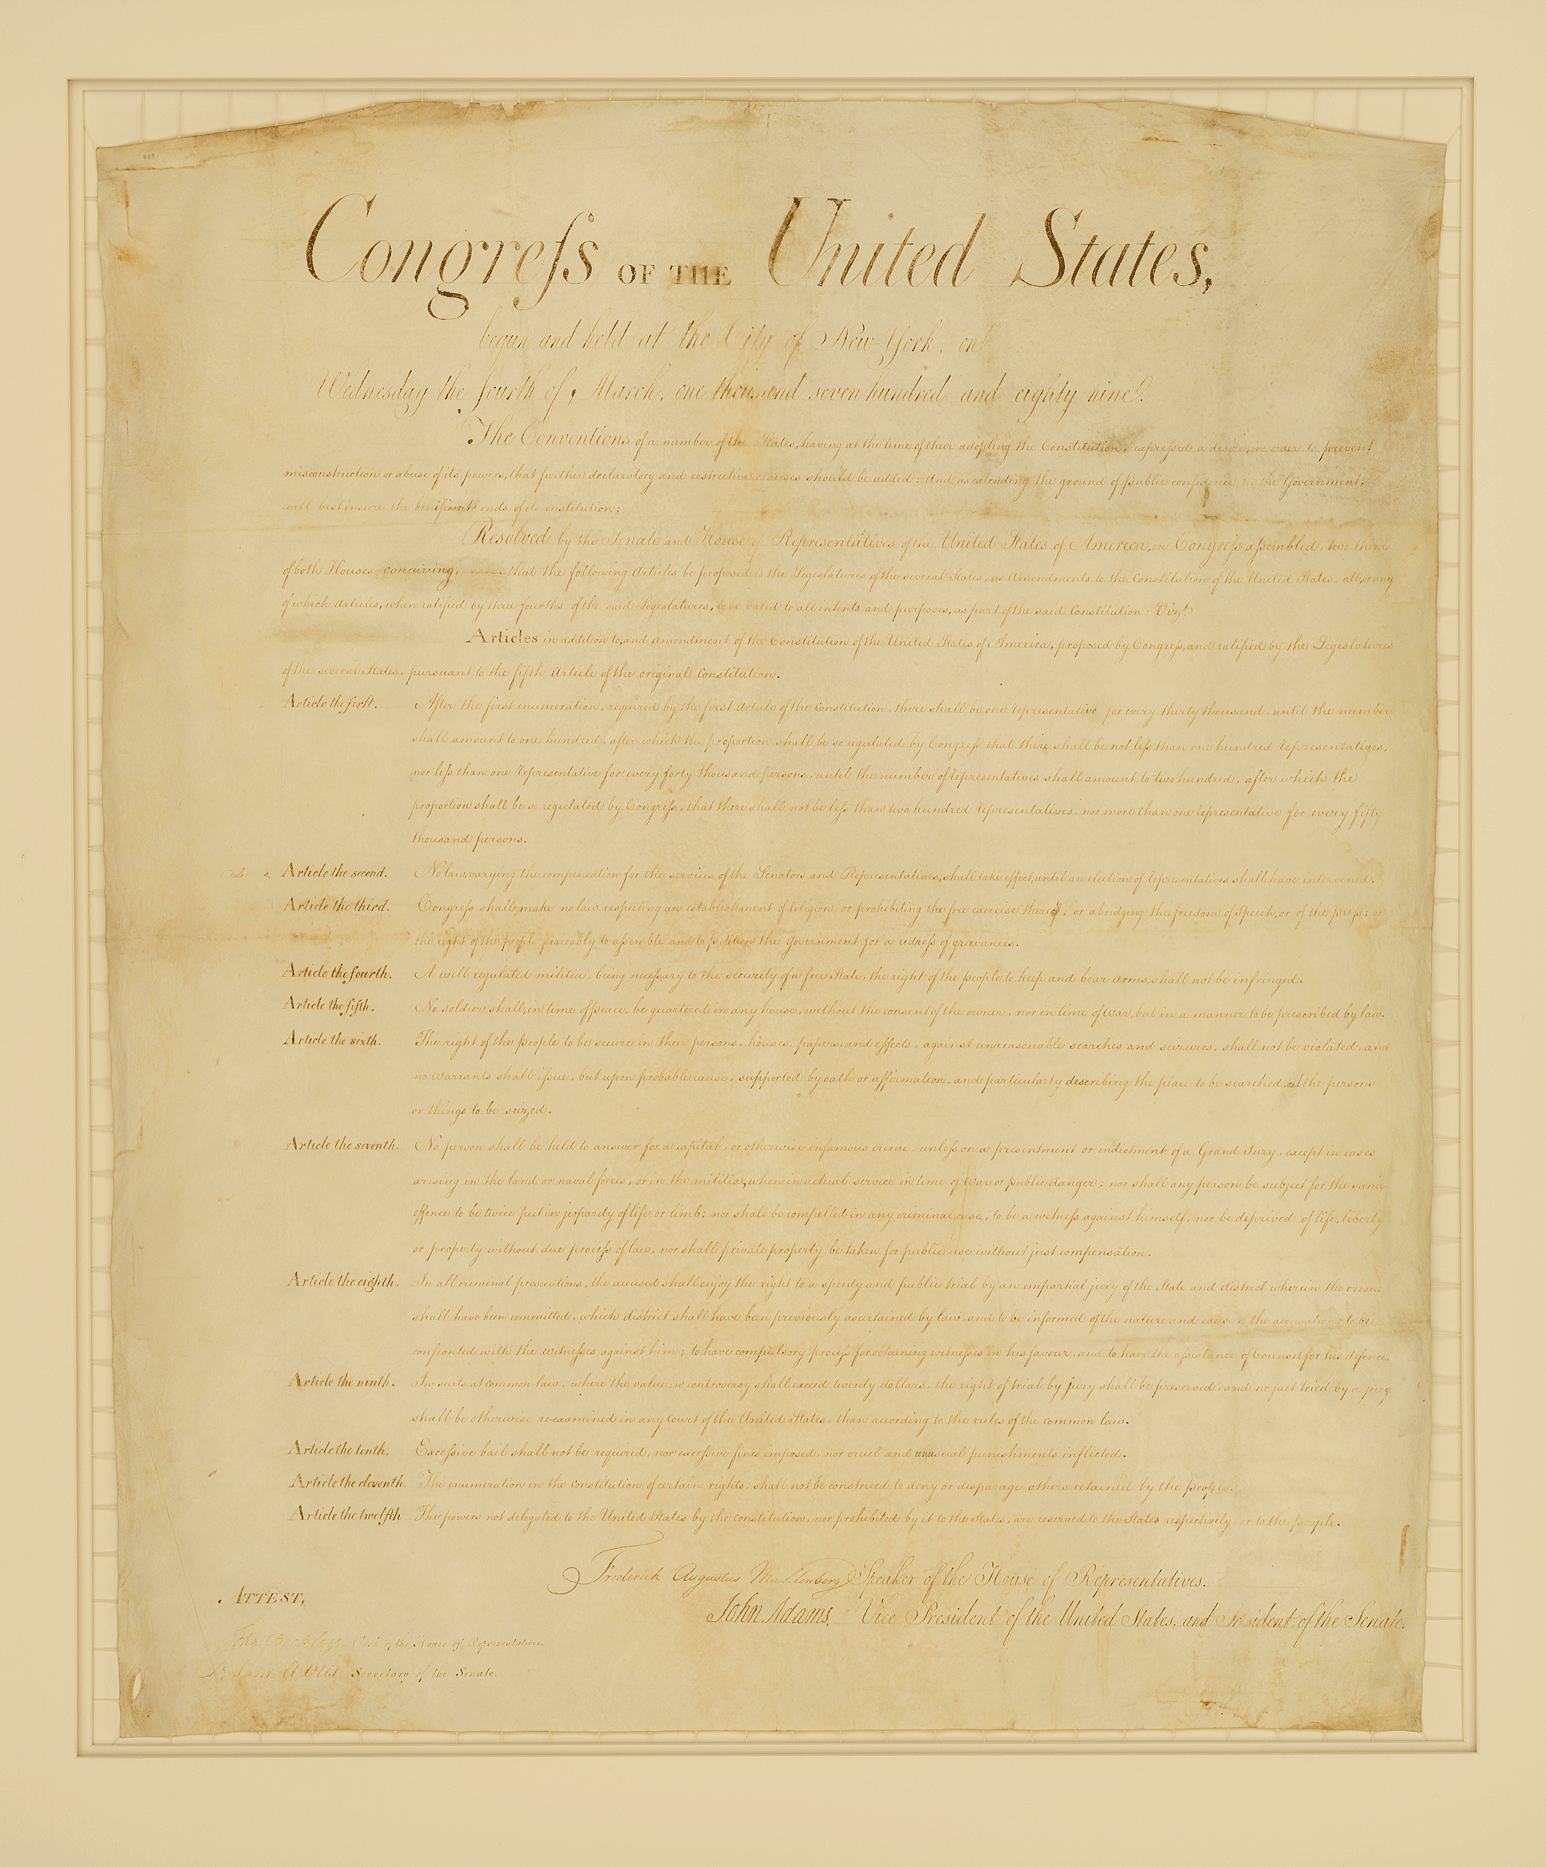 Congreſs OF THE United States,
begun and held at the City of New-York, on
Wednesday the fourth of March, one thousand seven hundred and eighty nine.
The Conventions of a number of the States, having at the time of their adopting the Constitution, expreſsed a desire, in order to prevent
misconstruction or abuse of its powers, that further declaratory and restrictive clauses should be added: And as extending the ground of public confidence in the Government,
will best ensure the beneficent ends of its institution;
Resolved by the Senate and House of Representatives of the United States of America, in Congreſs aſsembled, two thirds
of both Houses concurring, that the following Articles be proposed to the Legislatures of the several States, as Amendments to the Constitution of the United States, all, or any
of which Articles, when ratified by three fourths of the said Legislatures, to be valid to all intents and purposes, as part of the said Constitution; Vizt.
Articles in addition to, and amendment of the Constitution of the United States of America, proposed by Congreſs, and ratified by the Legislatures
of the several States, pursuant to the fifth Article of the original Constitution.
Article the first. After the first enumeration, required by the first Article of the Constitution, there shall be one Representative for every thirty thousand, until the number
shall amount to one hundred, after which, the proportion shall be so regulated by Congreſs, that there shall be not leſs than one hundred Representatives,
nor leſs than one Representative for every forty thousand persons, until the number of Representatives shall amount to two hundred, after which the
proportion shall be so regulated by Congreſs, that there shall not be leſs than two hundred Representatives, nor more than one Representative for every fifty
thousand persons.
Article the second. No law, varying the compensation for the services of the Senators and Representatives, shall take effect, until an election of Representatives shall have intervened.
Article the third. Congreſs shall make no law respecting an establishment of religion, or prohibiting the free exercise thereof; or abridging the freedom of speech, or of the preſs; or
the right of the people peaceably to aſsemble, and to petition the Government for a redreſs of grievances.
Article the fourth. A well regulated militia, being neceſsary to the security of a free State, the right of the people to keep and bear arms, shall not be infringed.
Article the fifth. No soldier shall, in time of peace, be quartered in any house, without the consent of the owner, nor in time of war, but in a manner to be prescribed by law.
Article the sixth. The right of the people to be secure in their persons, houses, papers, and effects, against unreasonable searches and seizures, shall not be violated, and
no warrants shall iſsue, but upon probable cause, supported by oath or affirmation, and particularly describing the place to be searched, and the persons
or things to be seized.
Article the seventh. No person shall be held to answer for a capital, or otherwise infamous crime, unleſs on a presentment or indictment of a Grand Jury, except in cases
arising in the land or naval forces, or in the militia, when in actual service in time of war or public danger; nor shall any person be subject for the same
offence to be twice put in jeopardy of life or limb; nor shall be compelled in any criminal case, to be a witneſs against himself, nor be deprived of life, liberty
or property, without due proceſs of law, nor shall private property be taken for public use without just compensation.
Article the eighth. In all criminal prosecutions, the accused shall enjoy the right to a speedy and public trial by an impartial jury of the State and district wherein the crime
shall have been committed, which district shall have been previously ascertained by law, and to be informed of the nature and cause of the accusation; to be
confronted with the witneſses against him; to have compulsory proceſs for obtaining witneſses in his favour, and to have the aſsistance of Counsel for his defence.
Article the ninth. In suits at common law, where the value in controversy shall exceed twenty dollars, the right of trial by jury shall be preserved, and no fact tried by a jury
shall be otherwise re-examined in any Court of the United States, than according to the rules of the common law.
Article the tenth. Exceſsive bail shall not be required, nor exceſsive fines imposed, nor cruel and unusual punishments inflicted.
Article the eleventh. The enumeration in the Constitution of certain rights, shall not be construed to deny or disparage others retained by the people.
Article the twelfth. The powers not delegated to the United States by the Constitution, nor prohibited by it to the States, are reserved to the States respectively, or to the people.
Frederick Augustus Muhlenberg Speaker of the House of Representatives.
John Adams, Vice President of the United States, and President of the Senate.
ATTEST,
John Beckley, Clerk of the House of Representatives.
Sam. A. Otis Secretary of the Senate.